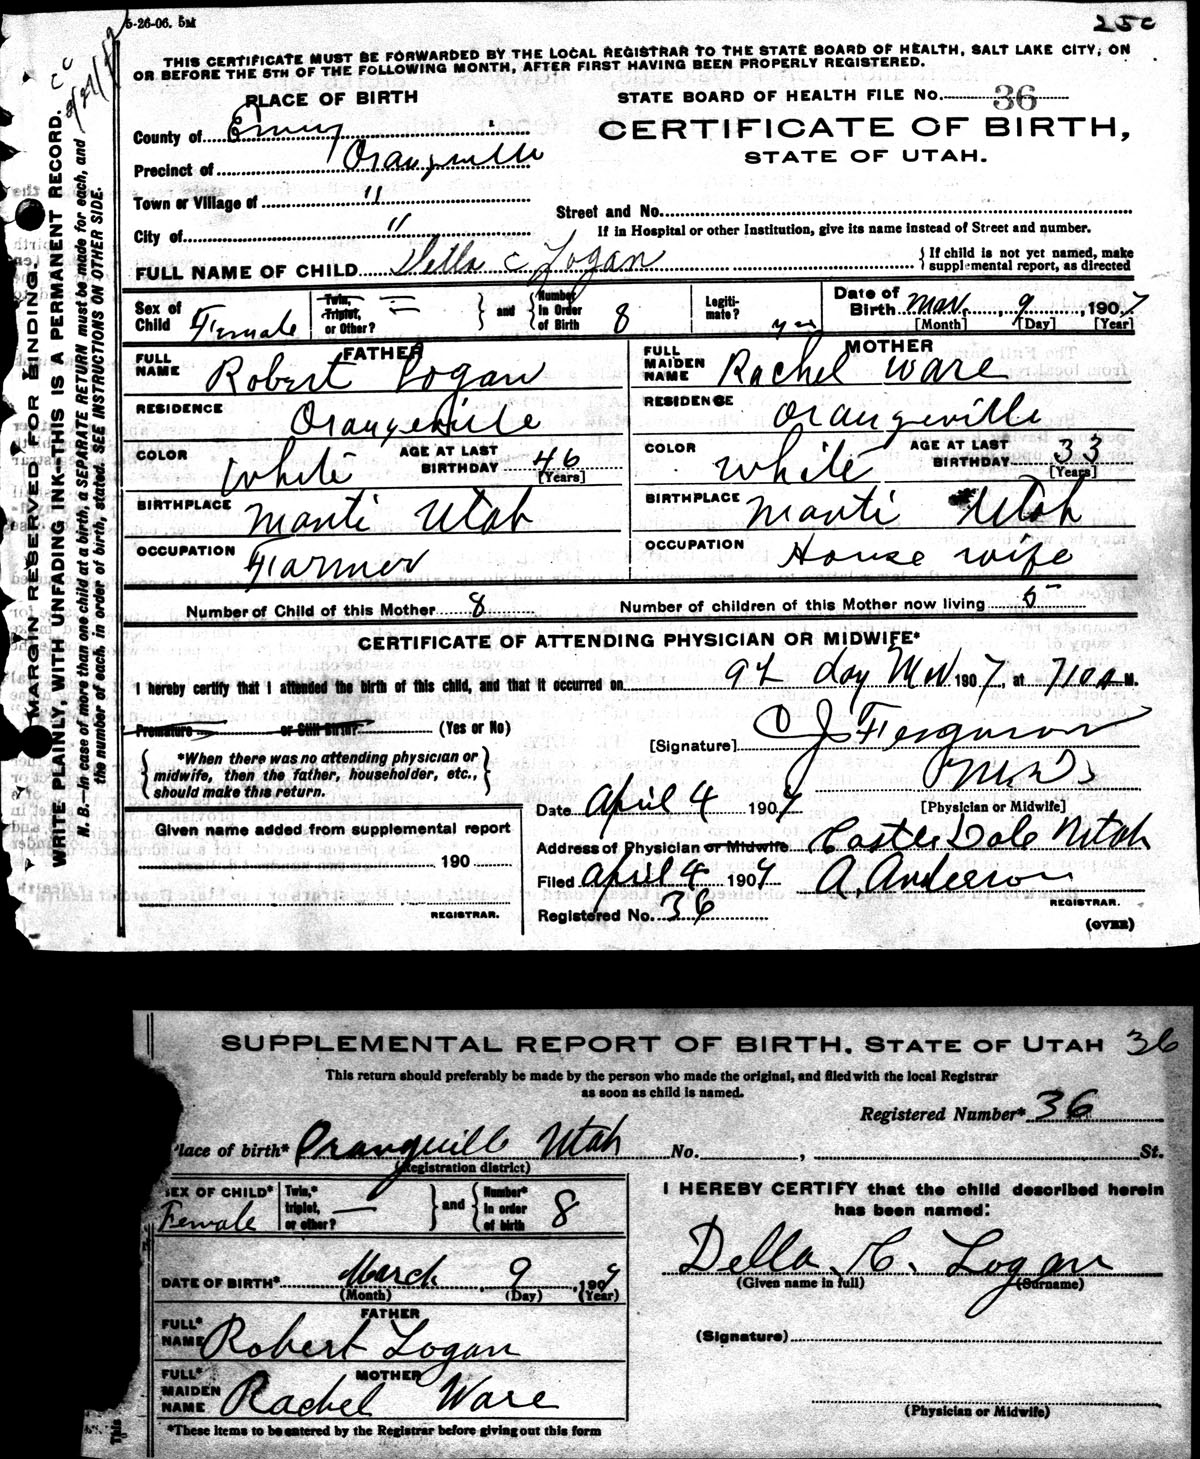 5-26-06. 5M
25c
THIS CERTIFICATE MUST BE FORWARDED BY THE LOCAL REGISTRAR TO THE STATE BOARD OF HEALTH, SALT LAKE CITY, ON
OR BEFORE THE 5TH OF THE FOLLOWING MONTH, AFTER FIRST HAVING BEEN PROPERLY REGISTERED.
MARGIN RESERVED FOR BINDING.
WRITE PLAINLY, WITH UNFADING INK—THIS IS A PERMANENT RECORD.
N. B.—In case of more than one child at a birth, a SEPARATE RETURN must be made for each, and
the number of each, in order of birth, stated. SEE INSTRUCTIONS ON OTHER SIDE.
PLACE OF BIRTH
STATE BOARD OF HEALTH FILE No. 36
County of Emery
CERTIFICATE OF BIRTH,
Precinct of Orangeville
STATE OF UTAH.
Town or Village of "
Street and No.
City of "
If in Hospital or other Institution, give its name instead of Street and number.
FULL NAME OF CHILD Della C Logan
{ If child is not yet named, make
supplemental report, as directed
Sex of Child Female
Twin, Triplet, or Other? =
} and { Number in Order of Birth 8
Legitimate? yes
Date of Birth Mar. 9, 1907
[Month] [Day] [Year]
FATHER
MOTHER
FULL NAME Robert Logan
FULL MAIDEN NAME Rachel Ware
RESIDENCE Orangeville
RESIDENCE Orangeville
COLOR White AGE AT LAST BIRTHDAY 46 [Years]
COLOR White AGE AT LAST BIRTHDAY 33 [Years]
BIRTHPLACE Manti Utah
BIRTHPLACE Manti Utah
OCCUPATION Farmer
OCCUPATION House wife
Number of Child of this Mother 8
Number of children of this Mother now living
CERTIFICATE OF ATTENDING PHYSICIAN OR MIDWIFE*
I hereby certify that I attended the birth of this child, and that it occurred on 9th day Mar 1907, at 710 A M.
Premature or Still Birth? (Yes or No)
[Signature] C J Ferguson
M.D.
{ *When there was no attending physician or
midwife, then the father, householder, etc.,
should make this return. }
Date April 4 1907
[Physician or Midwife]
Given name added from supplemental report
Address of Physician or Midwife Castle Dale Utah
190
Filed April 4 1907 A. Anderson
REGISTRAR.
REGISTRAR.
Registered No. 36
(OVER)
SUPPLEMENTAL REPORT OF BIRTH. STATE OF UTAH 36
This return should preferably be made by the person who made the original, and filed with the local Registrar
as soon as child is named.
Registered Number* 36
lace of birth* Orangeville Utah No. , St.
(Registration district)
SEX OF CHILD* Female
Twin,* triplet, or other? —
} and { Number* in order of birth 8
I HEREBY CERTIFY that the child described herein
has been named:
DATE OF BIRTH* March 9, 1907
(Month) (Day) (Year)
Della C. Logan
(Given name in full) (Surname)
FATHER
FULL* NAME Robert Logan
(Signature)
MOTHER
FULL* MAIDEN NAME Rachel Ware
(Physician or Midwife)
*These items to be entered by the Registrar before giving out this form
This